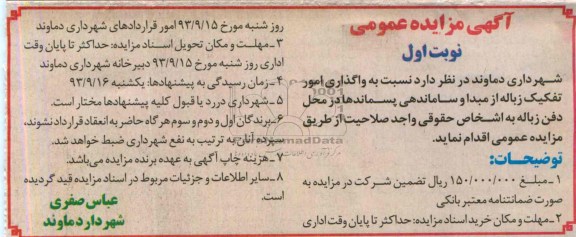 آگهی مزایده عمومی
نوبت اول
شهرداری دماوند در نظر دارد نسبت به واگذاری امور
تفکیک زباله از مبدا و ساماندهی پسماندها در محل
دفن زباله به اشخاص حقوقی واجد صلاحیت از طریق
مزایده عمومی اقدام نماید.
توضیحات:
۱-مبلغ ۱۵۰/۰۰۰/۰۰۰ ریال تضمین شرکت در مزایده به
صورت ضمانتنامه معتبر بانکی
۲-مهلت و مکان خرید اسناد مزایده: حداکثر تا پایان وقت اداری
روز شنبه مورخ ۹۳/۹/۱۵ امور قراردادهای شهرداری دماوند
۳-مهلت و مکان تحویل اسناد مزایده: حداکثر تا پایان وقت
اداری روز شنبه مورخ ۹۳/۹/۱۵ دبیرخانه شهرداری دماوند
۴-زمان رسیدگی به پیشنهادها: یکشنبه ۹۳/۹/۱۶
۵-شهرداری در رد یا قبول کلیه پیشنهادها مختار است.
۶-برندگان اول و دوم و سوم هرگاه حاضر به انعقاد قرارداد نشوند،
سپرده آنان به ترتیب به نفع شهرداری ضبط خواهد شد.
۷-هزینه چاپ آگهی به عهده برنده مزایده می‌باشد.
۸-سایر اطلاعات و جزئیات مربوط در اسناد مزایده قید گردیده
است.
عباس صفری
شهردار دماوند